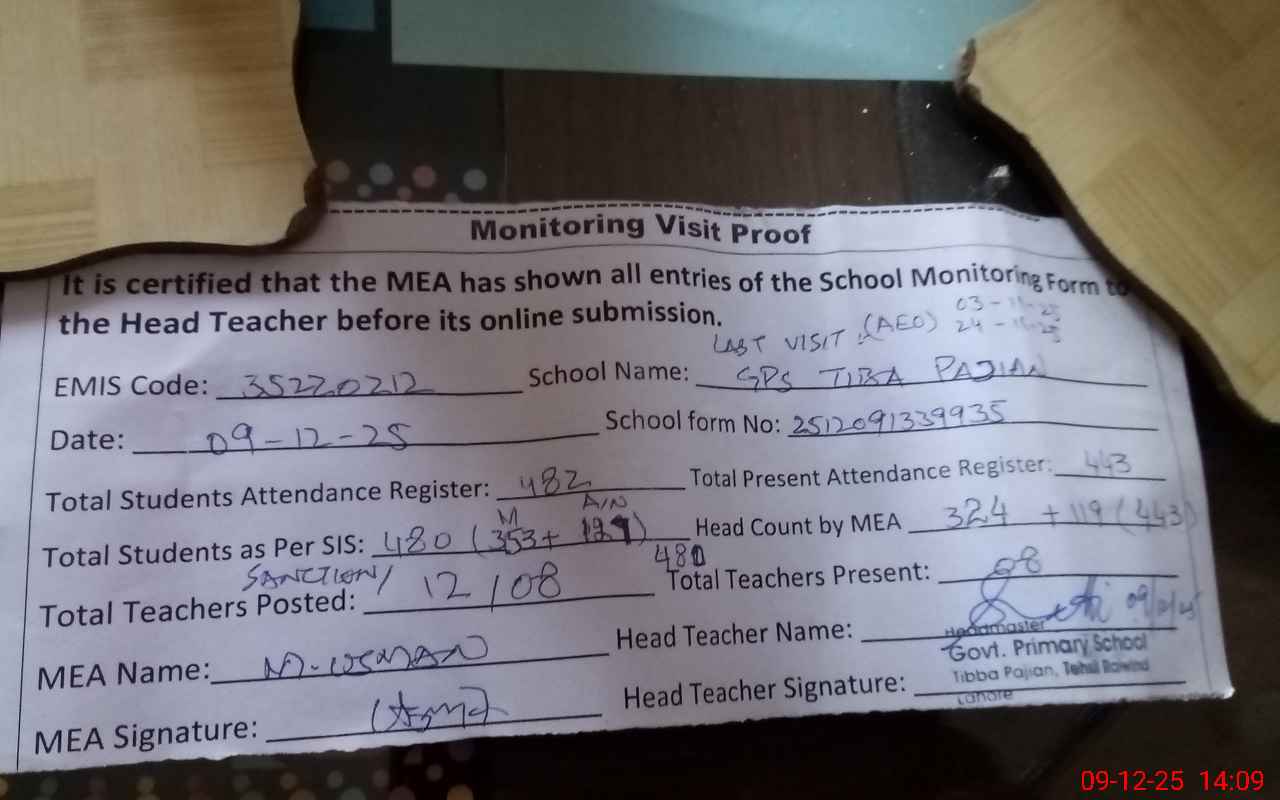 Monitoring Visit Proof
It is certified that the MEA has shown all entries of the School Monitoring Form to
the Head Teacher before its online submission.
LAST VISIT : (AEO) 03 - 11-25
24 - 11-25
EMIS Code: 35220212 School Name: GPS TIBA PAJIAN
Date: 09-12-25 School form No: 2512091339935
Total Students Attendance Register: 482 Total Present Attendance Register: 443
M A/N
Total Students as Per SIS: 480 (353+ ) Head Count by MEA 324 + 119 (443)
480
SANCTION/
Total Teachers Posted: 12/08 Total Teachers Present: 08
09/12/25
MEA Name: M-USMAN Head Teacher Name:
Headmaster
Govt. Primary School
Tibba Pajian, Tehsil Raiwind
Lahore
MEA Signature: Head Teacher Signature:
09-12-25 14:09